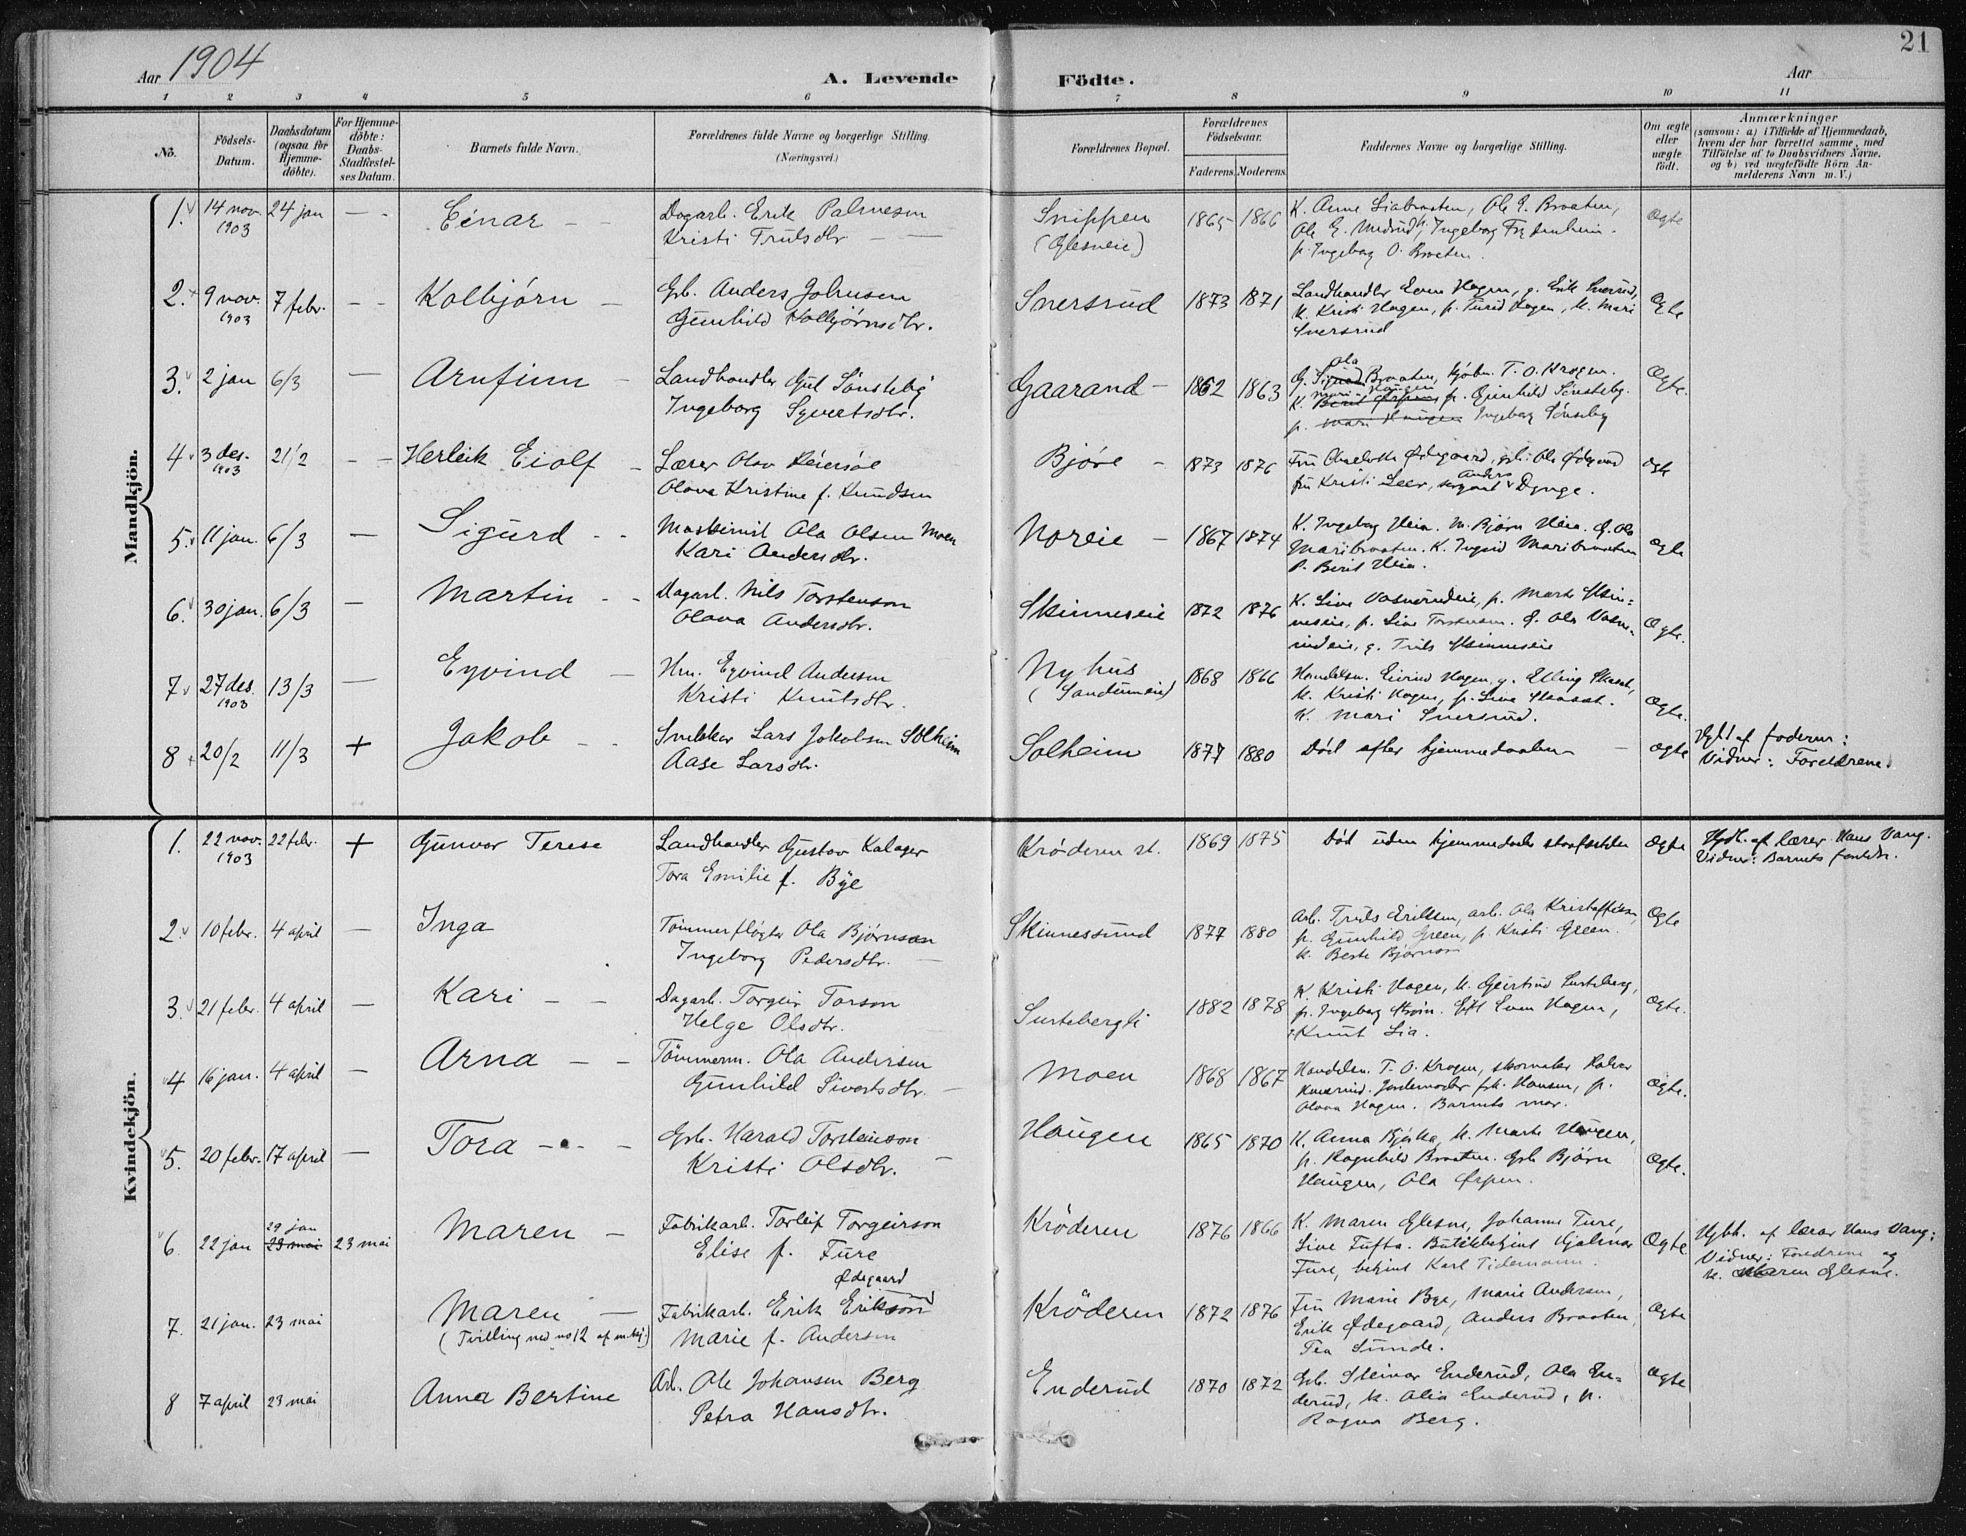 21
Aar 1904
A. Levende Födte.
Aar
1 2 3 4 5 6 7 8 9 10 11
No.
Födsels-Datum.
Daabsdatum (ogsaa for Hjemme-döbte).
For Hjemme-döbte: Daabs-Stadfæstel-ses Datum.
Barnets fulde Navn.
Forældrenes fulde Navne og borgerlige Stilling. (Næringsvei.)
Forældrenes Bopæl.
Forældrenes Födselsaar.
Faderens. Moderens.
Faddernes Navne og borgerlige Stilling.
Om ægte eller uægte födt.
Anmærkninger
(saasom: a) i Tilfælde af Hjemmedaab,
hvem der har forrettet samme, med
Tilföielse af to Daabsvidners Navne,
og b) ved uægtefödte Börn An-
melderens Navn m. V.)
Mandkjön.
1. 14 nov. 1903 24 jan — Einar
Dagarb. Erik Palmesen
Kristi Trulsdtr
Snippen
(Glesneie)
1865 1866
K. Anne Liabraaten, Ole E. Braaten,
Ole G. Medrud, Ingeborg
p. Ingeborg O. Braaten.
Ægte
2. 9 nov. 1903 7 febr. — Kolbjørn
Grb. Anders Johnsen
Gunhild Kolbjørnsdtr.
Snersrud 1873 1871
Landhandler Even Hagen, g. Erik Snersrud,
k. Kristi Hagen, p. Turid Hagen, k. Mari
Snersrud
Ægte
3. 2 jan 6/3 — Arnfinn
Landhandler Gul Sønsteby
Ingeborg Syvertsdtr.
Gaarand 1862 1863
Ola
G. Braaten, Kjøbm. T. O. Kragen.
K. Mari Haugen p. Gunhild Sønsteby.
p. Mari Haugen Ingeborg Sønsteby
Ægte.
4 3 des. 1903 21/2 — Herleik Eiolf
Lærer Olav
Olava Kristine f. Knudsen
Bjøre 1873 1876
Fru Charlotte Ødegaard, grb. Ole Ødegaard
fru Kristi Leer, sergeant Anders Dynge.
Ægte
5. 11 jan. 6/3 — Sigurd
Maskinist Ola Olsen Moen
Kari Andersdtr.
Noreie 1867 1874
K. Ingeborg Heia. M. Bjørn Heia. G. Ole
Maribraaten. K. Ingrid Maribraaten
P. Berit Heia.
Ægte
6. 30 jan. 6/3 — Martin
Dagarb. Nils Torstenson
Olava Andersdtr.
Skinneseie 1872 1876
K. Live Vasrudeie, p. Marte Skin-
neseie, p. Live Torstensen. G. Ola
g. Truls Skinneseie
Ægte.
7 27 des. 1903 13/3 — Eyvind
Hm. Eyvind Andersen
Kristi Knutsdtr.
Nyhus
(Sandumeie)
1868 1866
Handelsm. Eivind Hagen, g. Elling Skaset,
k. Kristi Hagen, p. Live Skaset.
K. Mari Snersrud.
Ægte.
8 20/2 11/3 + Jakob
Snekker Lars Jakobsen Solheim
Aase Larsdtr.
Solheim 1877 1880
Død efter hjemmedaaben — Ægte
Hjdt af faderen:
Vidner: Foreldrene.
Kvindekjön.
1. 22 nov. 1903 22 febr. + Gunvor Terese
Landhandler Gustav Kalager
Tora Emilie f. Bye
Krøderen st. 1869 1875
Død uden hjemmedaabs stadfestelse Ægte
Hjdb. af lærer Hans Vang.
Vidner: Barnets foreldre.
2. 10 febr. 4 april — Inga
Tømmerfløgter Ola Bjørnson
Ingeborg Pedersdtr.
Skinnessund 1877 1880
Arb. Truls Eriksen, arb. Ola Kristoffersen,
p. Gunhild Green, p. Kristi Green.
k. Beste Bjørnson
Ægte
3. 21 febr. 4 april — Kari
Dagarb. Torgeir Torson
Helge Olsdtr.
Surtebergli 1882 1878
K. Kristi Hagen, k. Gjertrud Surteberg,
p. Ingeborg Even Hagen,
Knut Lia.
Ægte.
4 16 jan. 4 april — Arna
Tømmerm. Ola Andersen
Gunhild Sivertsdtr.
Moen 1868 1867
Handelsm. T. O. Kragen, skomaker Halvor
Jordemoder frk. Hansen, p.
Olava Hagen. Barnets mor.
Ægte.
5. 20 febr. 17 april — Tora
Grb. Harald Torstenson
Kristi Olsdtr.
Haugen 1865 1870
K. Anna Bjerke, k. Marte Haugen,
p. Ragnhild Braaten. Grb Bjørn
Haugen, Ola Ørpen.
Ægte.
6. 22 jan 29 jan 23 mai 23 mai Maren
Fabrikarb. Torleif Torgeirson
Elise f. Fure
Krøderen 1876 1866
K. Maren Glesne, Johanne Fure,
Live Tufta. Butikbetjent Hjalmar
Fure, betjent Karl Tidemann.
Ægte
Hjdb. af lærer Hans Vang;
Vidner: Foreldrene og
k. Maren Glesne.
7. 21 jan. 23 mai Maren
(Tvilling med no 12 af mkj.)
Ødegaard
Fabrikarb. Erik Erikson
Marie f. Andersen
Krøderen 1872 1876
Fru Marie Bye, Marie Andersen,
Erik Ødegaard, Anders Braaten,
Tea Sunde.
Ægte
8 7 april 23 mai Anna Bertine
Arb. Ole Johansen Berg
Petra Hansdtr.
Enderud 1870 1872
Grb. Steinar Enderud, Ola En-
derud, k. Olia Enderud, p.
Ragna Berg.
Ægte